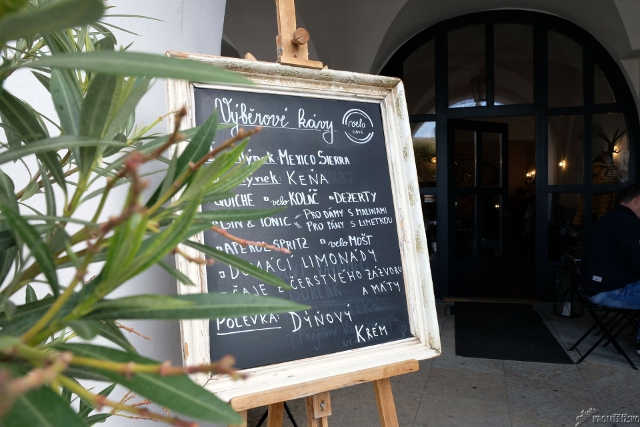 Výběrové kávy
velo
café
mlýnek: MEXICO SIERRA
mlýnek: KEŇA
QUICHE velo KOLÁČ DEZERTY
GIN & TONIC PRO DÁMY S MALINAMI
PRO PÁNY S LIMETKOU
APEROL SPRITZ velo MOŠT
DOMÁCÍ LIMONÁDY
ČAJE ČERSTVÉHO ZÁZVORU
A MÁTY
POLÉVKA: DÝŇOVÝ
KRÉM